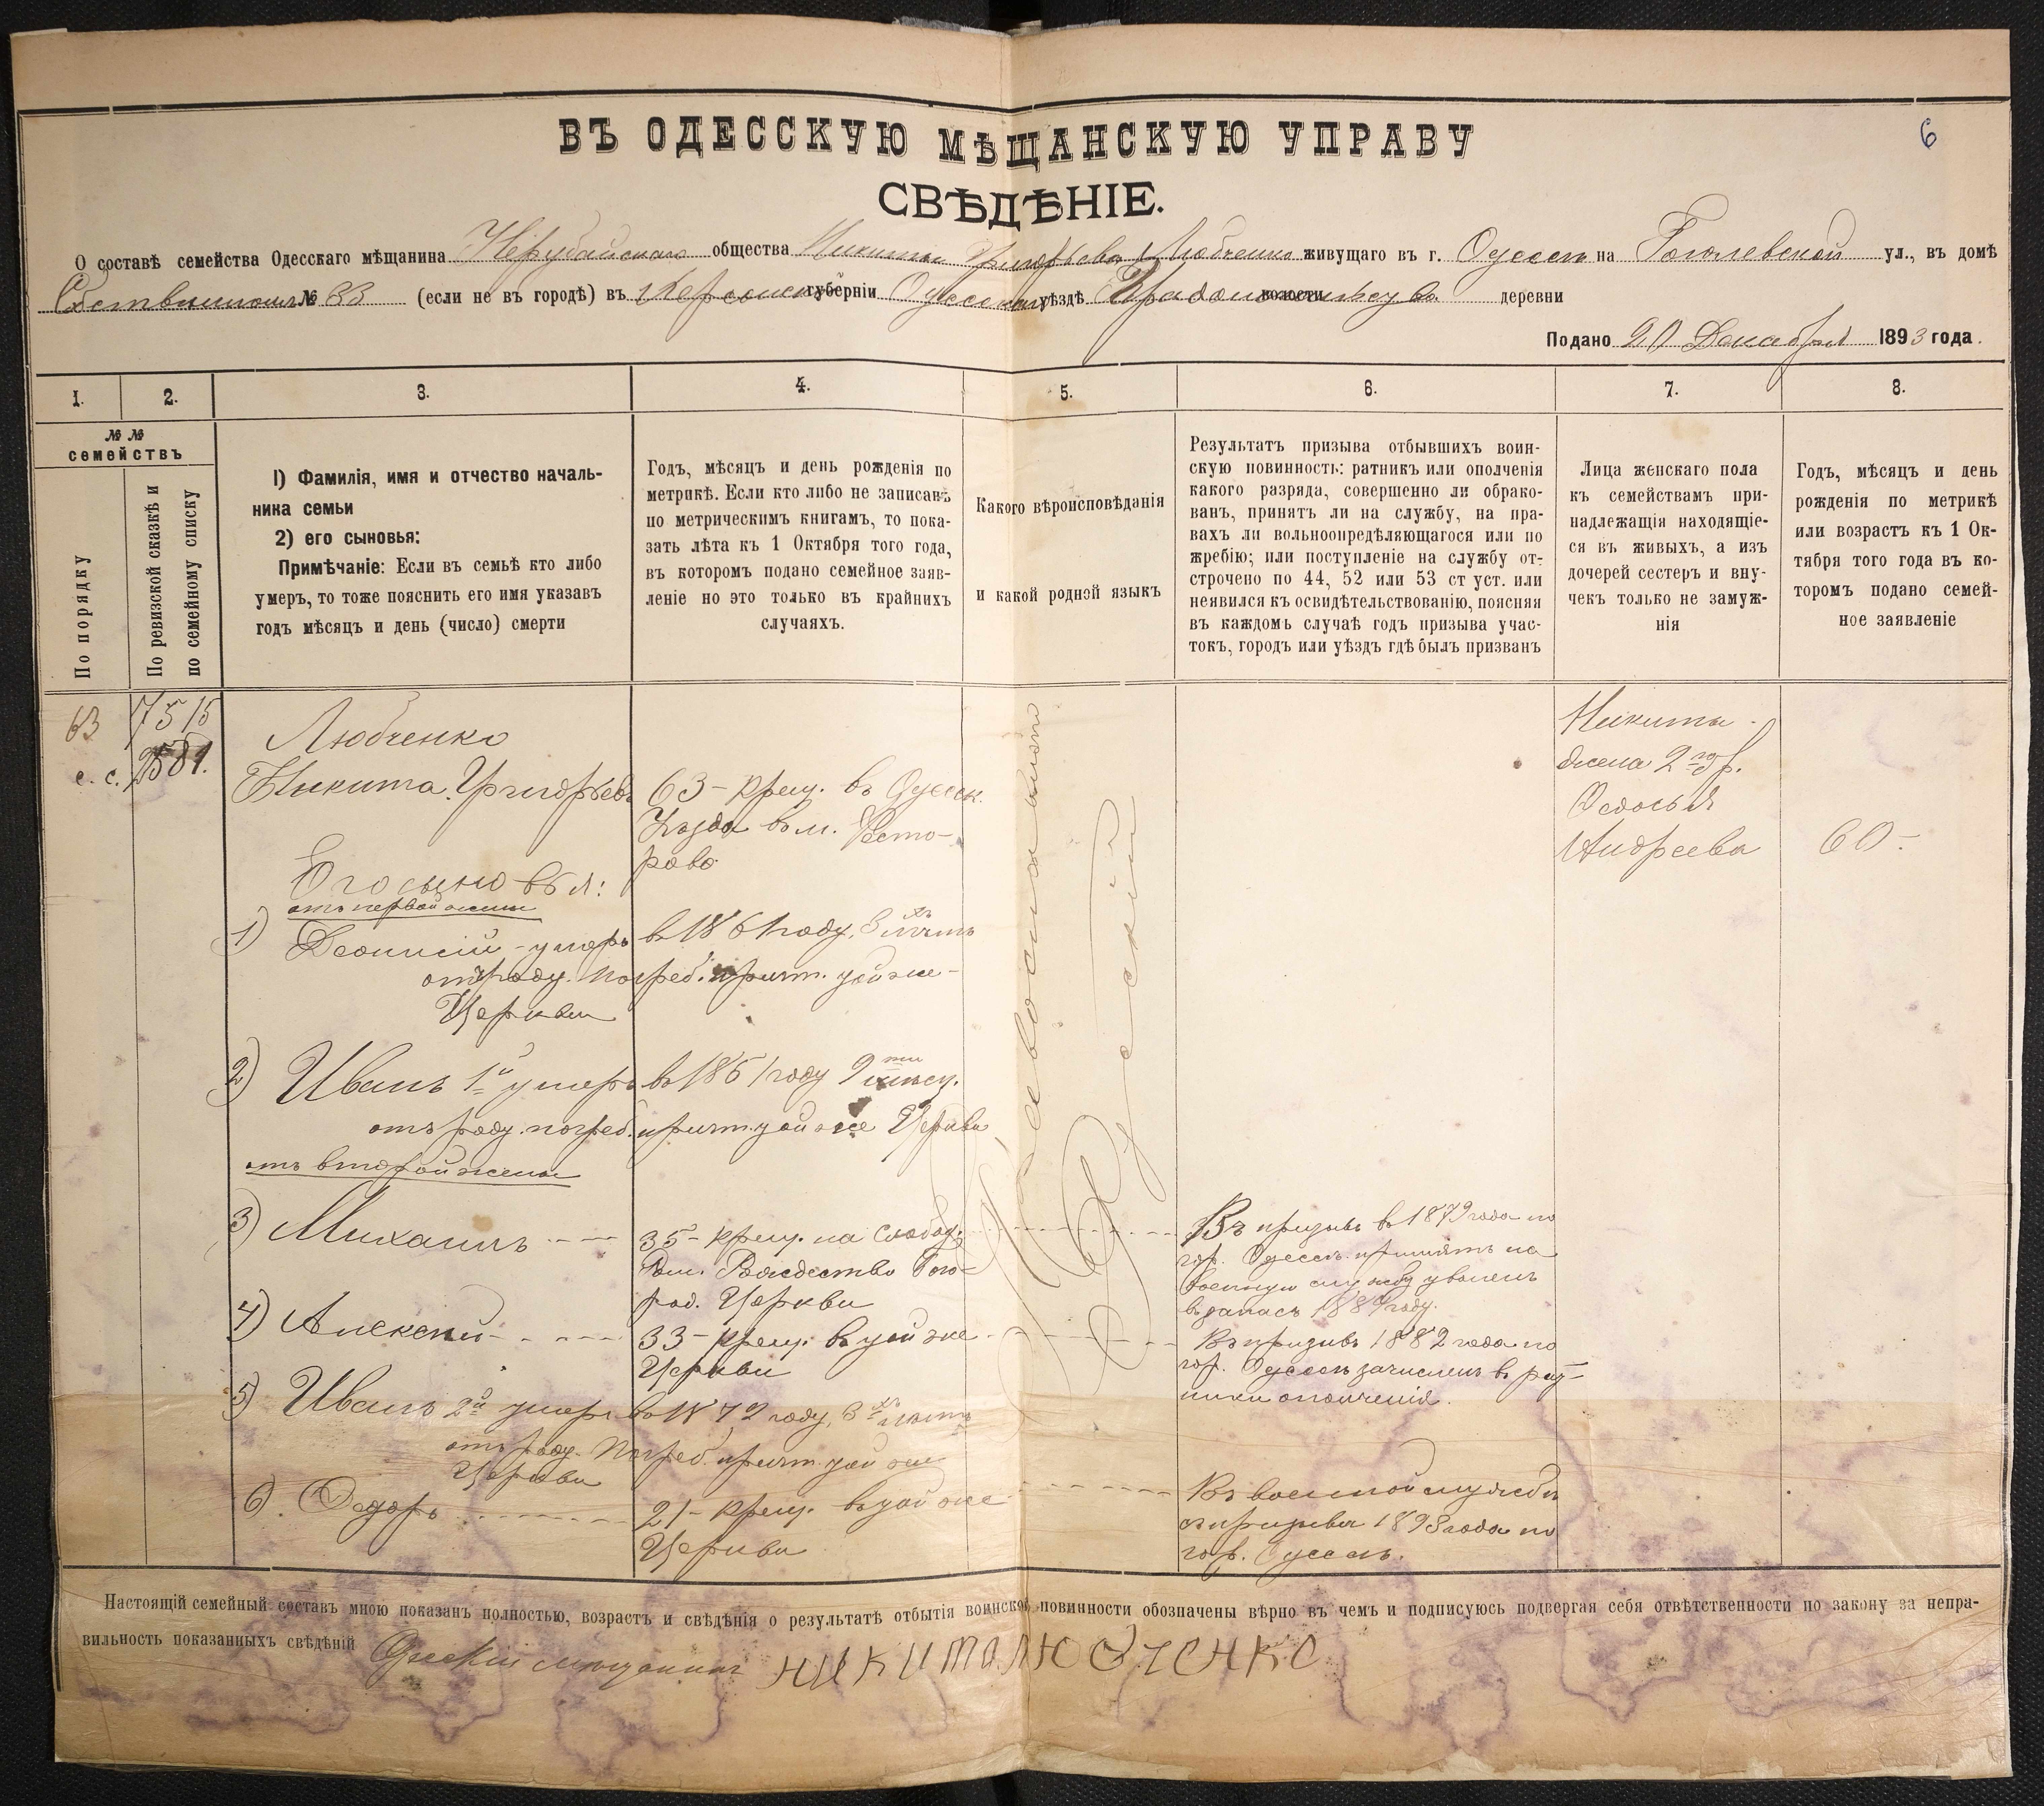 6
ВЪ ОДЕССКУЮ МѢЩАНСКУЮ УПРАВУ
СВѢДѢНІЕ.
О составѣ семейства Одесскаго мѣщанина Нерубайскаго общества Никиты Григорьева Любченко живущаго въ г. Одессѣ на Гоголевской ул., въ домѣ
Собственномъ № 33 (если не въ городѣ) въ Херсонск губерніи Одесскомъ уѣздѣ волости деревни
Подано 20 Декабря 1893 года.
1. 2. 3. 4. 5. 6. 7. 8.
№ №
семействъ
По порядку
По ревизской сказкѣ и
по семейному списку
1) Фамилія, имя и отчество началь-
ника семьи
2) его сыновья:
Примѣчаніе: Если въ семьѣ кто либо
умеръ, то тоже пояснить его имя указавъ
годъ мѣсяцъ и день (число) смерти
Годъ, мѣсяцъ и день рожденія по
метрикѣ. Если кто либо не записанъ
по метрическимъ книгамъ, то пока-
зать лѣта къ 1 Октября того года,
въ которомъ подано семейное заяв-
леніе но это только въ крайнихъ
случаяхъ.
Какого вѣроисповѣданія
и какой родной языкъ
Результатъ призыва отбывшихъ воин-
скую повинность: ратникъ или ополченія
какого разряда, совершенно ли обрако-
ванъ, принятъ ли на службу, на пра-
вахъ ли вольноопредѣляющагося или по
жребію; или поступленіе на службу от-
строчено по 44, 52 или 53 ст уст. или
неявился къ освидѣтельствованію, поясняя
въ каждомъ случаѣ годъ призыва учас-
токъ, городъ или уѣздъ гдѣ былъ призванъ
Лица женскаго пола
къ семействамъ при-
надлежащія находящіе-
ся въ живыхъ, а изъ
дочерей сестеръ и вну-
чекъ только не замуж-
нія
Годъ, мѣсяцъ и день
рожденія по метрикѣ
или возрастъ къ 1 Ок-
тября того года въ ко-
торомъ подано семей-
ное заявленіе
63
7515
с. с. 2581.
Любченко
Никита Григорьевъ
63 - крещ. въ Одесск.
Уѣзда въ м.
Его сыновья:
отъ первой жены
1) Деонисій - умеръ въ 1861 году, 3 хъ лѣтъ
отъ роду. погреб. причт. той же
Церкви
2) Иванъ 1й умеръ въ 1861 году 9 ти мѣсяц.
отъ роду. погреб. причт. той же Церкви
отъ второй жены
3) Михаилъ
35 - крещ. на слобод.
Ром. Рождество Бого-
род. Церкви
4) Алексѣй
33 - крещ. въ той же
Церкви
5) Иванъ 2й умеръ въ 1872 году, 3 хъ лѣтъ
отъ роду. Погреб. причт. той же
Церкви
6). Федоръ
21 - крещ. въ той же
Церкви
Православнаго
Русскій
Въ призывъ въ 1879 года по
гор. Одессѣ принятъ на
военную службу уволенъ
въ запасъ 1884 году.
Въ призывъ 1882 года по
гор. Одессѣ зачисленъ въ рат-
ники ополченія.
Въ военной службѣ
съ призыва 1893 года по
гор. Одессѣ.
Никиты
жена 2го бр.
Федосья
Андреева
60 -
Настоящій семейный составъ мною показанъ полностью, возрастъ и свѣдѣнія о результатѣ отбытія воинской повинности обозначены вѣрно въ чемъ и подписуюсь подвергая себя отвѣтственности по закону за непра-
вильность показанныхъ свѣдѣній Одесскій мѣщанинъ НИКИТА ЛЮБЧЕНКО